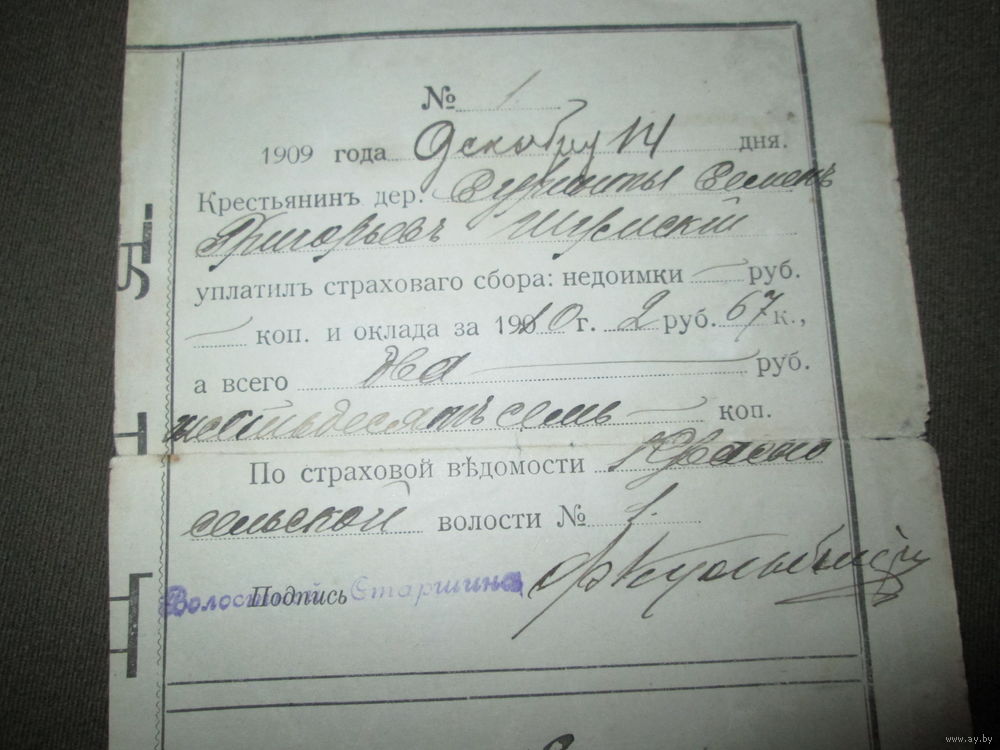 № 1.
1909 года Декабря 14 дня.
Крестьянинъ дер. Семенъ
Григорьевъ Шумскій
уплатилъ страховаго сбора: недоимки — руб.
— коп. и оклада за 1910 г. 2 руб. 67 к.,
а всего два — руб.
шестьдесятъ семь — коп.
По страховой вѣдомости Красно
сельской волости № 1.
Подпись Волостной Старшина
www.ay.by